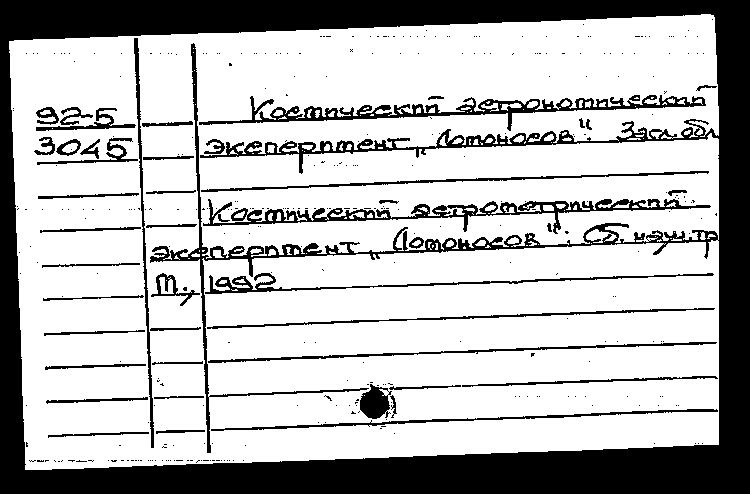 92-5 Космический астрономический
3045 эксперимент „Ломоносов“: Загл. обл
Космический астрометрический
эксперимент „Ломоносов“: Сб. науч. тр
М., 1992